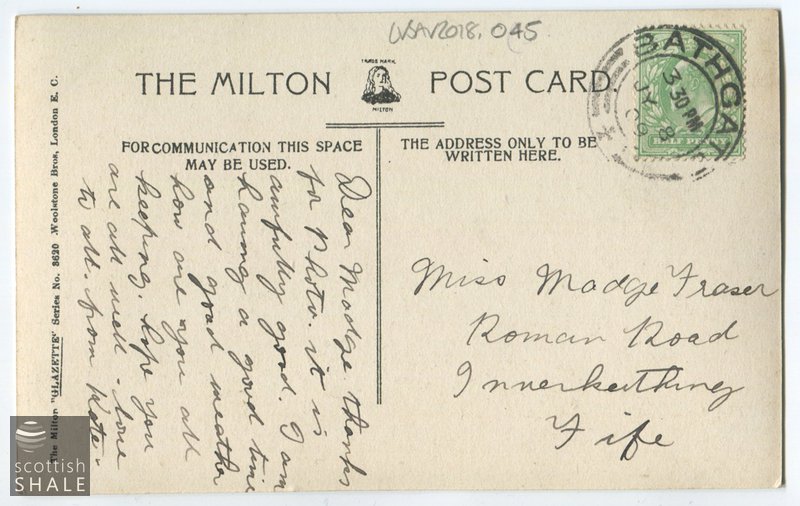 LVSAV2018.045
THE MILTON
TRADE MARK
MILTON
POST CARD
BATHGATE
3 30 PM
JY 8
09
HALF PENNY
FOR COMMUNICATION THIS SPACE
MAY BE USED.
THE ADDRESS ONLY TO BE
WRITTEN HERE.
Dear Madge thanks
for Photo. it is
awfully good. I am
having a good time
and good weather
how are you all
keeping. hope you
are all well - love
to all. from Kate -
Miss Madge Fraser
Roman Road
Inverkeithing
Fife
The Milton "GLAZETTE" Series No. 3620 Woolstone Bros, London E. C.
scottish
SHALE